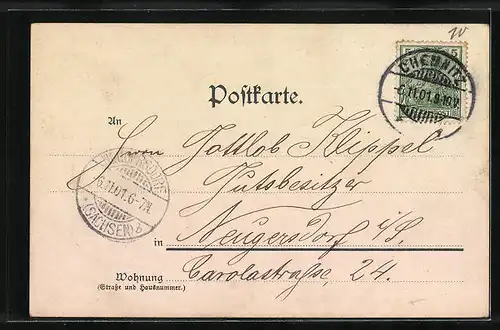 5 5
CHEMNITZ
6.11.01.9-10V.
Postkarte.
An
Herrn Gottlob Klippel
Gutsbesitzer
6.11.01.6-7N.
(SACHSEN)
in Neugersdorf i/S.
Wohnung
(Straße und Hausnummer.)
Carolastraße, 24.